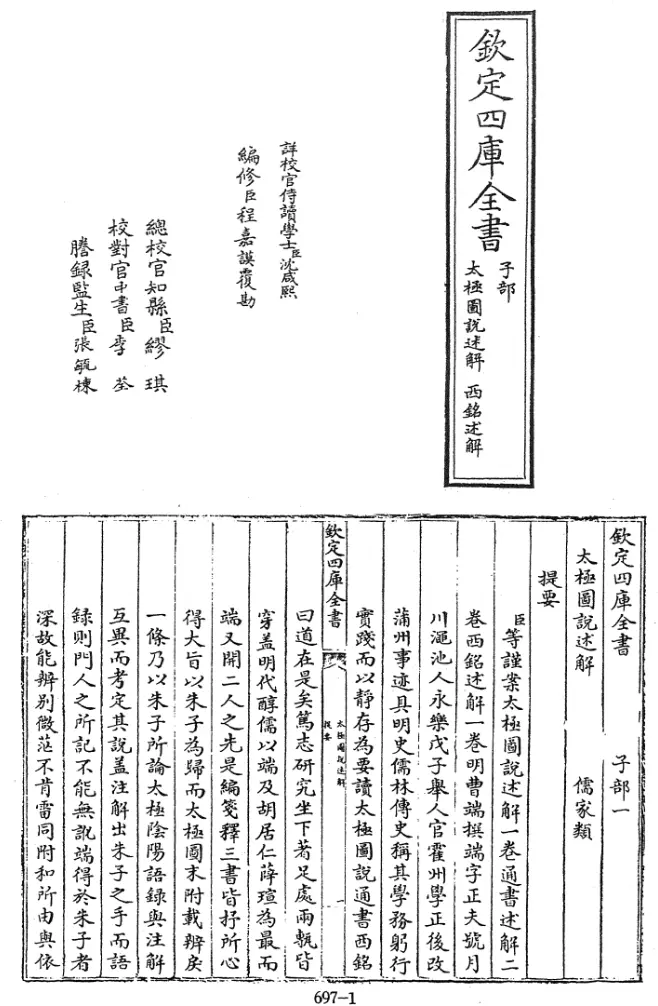 欽定四庫全書
子部
太極圖說述解 西銘述解
詳校官侍讀學士臣沈咸熙
編修臣程嘉謨覆勘
總校官知縣臣繆琪
校對官中書臣李荃
謄録監生臣張毓棟
欽定四庫全書 子部一
太極圖說述解 儒家類
提要
臣等謹案太極圖說述解一卷通書述解二
卷西銘述解一卷明曹端撰端字正夫號月
川澠池人永樂戊子舉人官霍州學正後改
蒲州事迹具明史儒林傳史稱其學務躬行
實踐而以靜存為要讀太極圖說通書西銘
欽定四庫全書
太極圖說述解
提要
一
曰道在是矣篤志研究坐下著足處兩甎皆
穿盖明代醇儒以端及胡居仁薛瑄為最而
端又開二人之先是編箋釋三書皆抒所心
得大旨以朱子為歸而太極圖末附載辨戾
一條乃以朱子所論太極陰陽語錄與注解
互異而考定其說盖注解出朱子之手而語
録則門人之所記不能無訛端得於朱子者
深故能辨别微茫不肯雷同附和所由與依
697-1